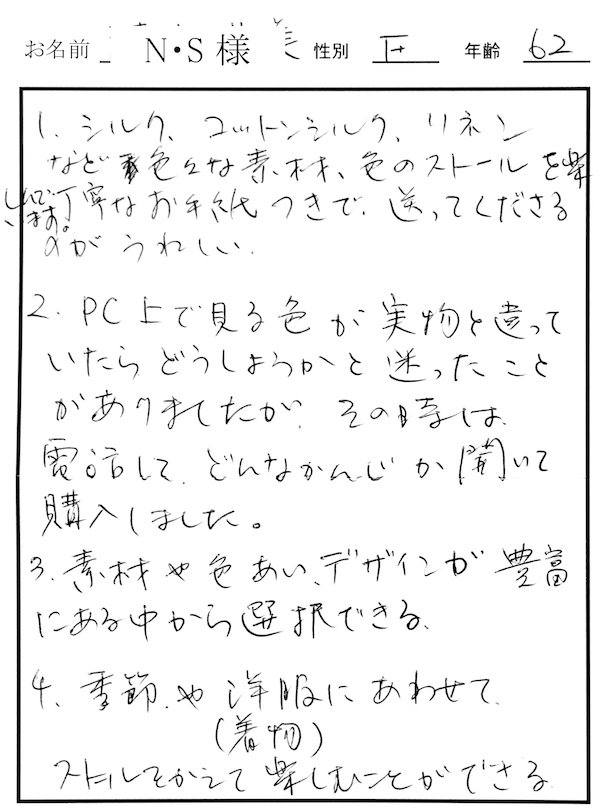 お名前 N・S 様 性別 女 年齢 62
1. シルク、コットンシルク、リネン
など色々な素材、色のストールを楽
しんでいます。丁寧なお手紙つきで、送ってくださる
のがうれしい.
2. PC上で見る色が実物と違って
いたらどうしようかと迷ったこと
がありましたが、その時は
電話して、どんなかんじか聞いて
購入しました。
3. 素材や色あい、デザインが豊富
にある中から選択できる.
4. 季節や洋服にあわせて
(着物)
ストールをかえて楽しむことができる.